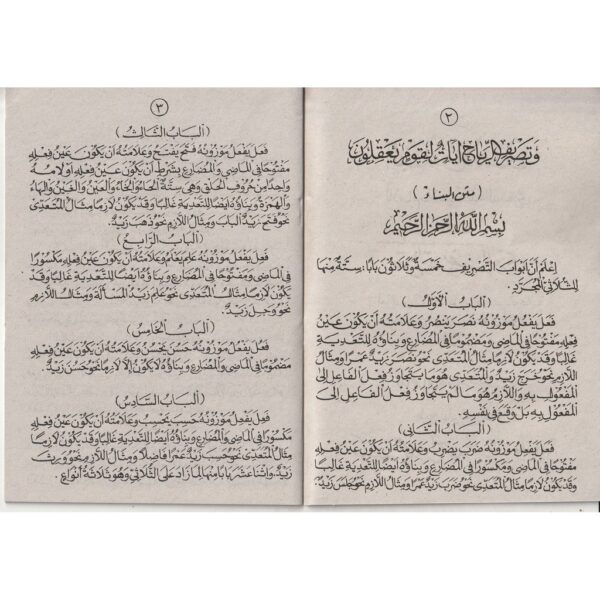 ٢
وَتَصْرِيفِ الرِّيَاحِ آيَاتٌ لِقَوْمٍ يَعْقِلُونَ
(متن البناء)
بِسْمِ اللَّهِ الرَّحْمٰنِ الرَّحِيمِ
اِعْلَمْ أَنَّ أَبْوَابَ التَّصْرِيفِ خَمْسَةٌ وَثَلَاثُونَ بَابًا: سِتَّةٌ مِنْهَا
لِلثُّلَاثِيِّ الْمُجَرَّدِ.
(اَلْبَابُ الْأَوَّلُ)
فَعَلَ يَفْعُلُ مَوْزُونُهُ نَصَرَ يَنْصُرُ وَعَلَامَتُهُ أَنْ يَكُونَ عَيْنُ
فِعْلِهِ مَفْتُوحًا فِي الْمَاضِي وَمَضْمُومًا فِي الْمُضَارِعِ وَبِنَاؤُهُ لِلتَّعْدِيَةِ
غَالِبًا وَقَدْ يَكُونُ لَازِمًا مِثَالُ الْمُتَعَدِّي نَحْوُ نَصَرَ زَيْدٌ عَمْرًا وَمِثَالُ
اللَّازِمِ نَحْوُ خَرَجَ زَيْدٌ وَالْمُتَعَدِّي هُوَ مَا يَتَجَاوَزُ فِعْلُ الْفَاعِلِ إِلَى
الْمَفْعُولِ بِهِ وَاللَّازِمُ هُوَ مَا لَمْ يَتَجَاوَزْ فِعْلُ الْفَاعِلِ إِلَى
الْمَفْعُولِ بِهِ بَلْ وَقَعَ فِي نَفْسِهِ.
(اَلْبَابُ الثَّانِي)
فَعَلَ يَفْعِلُ مَوْزُونُهُ ضَرَبَ يَضْرِبُ وَعَلَامَتُهُ أَنْ يَكُونَ عَيْنُ فِعْلِهِ
مَفْتُوحًا فِي الْمَاضِي وَمَكْسُورًا فِي الْمُضَارِعِ وَبِنَاؤُهُ أَيْضًا لِلتَّعْدِيَةِ غَالِبًا
وَقَدْ يَكُونُ لَازِمًا مِثَالُ الْمُتَعَدِّي نَحْوُ ضَرَبَ زَيْدٌ عَمْرًا وَمِثَالُ اللَّازِمِ نَحْوُ جَلَسَ زَيْدٌ.
٣
(اَلْبَابُ الثَّالِثُ)
فَعَلَ يَفْعَلُ مَوْزُونُهُ فَتَحَ يَفْتَحُ وَعَلَامَتُهُ أَنْ يَكُونَ عَيْنُ فِعْلِهِ
مَفْتُوحًا فِي الْمَاضِي وَالْمُضَارِعِ بِشَرْطِ أَنْ يَكُونَ عَيْنُ فِعْلِهِ أَوْ لَامُهُ
وَاحِدًا مِنْ حُرُوفِ الْحَلْقِ وَهِيَ سِتَّةٌ الْحَاءُ وَالْخَاءُ وَالْعَيْنُ وَالْغَيْنُ وَالْهَاءُ
وَالْهَمْزَةُ وَبِنَاؤُهُ أَيْضًا لِلتَّعْدِيَةِ غَالِبًا وَقَدْ يَكُونُ لَازِمًا مِثَالُ الْمُتَعَدِّي
نَحْوُ فَتَحَ زَيْدٌ الْبَابَ وَمِثَالُ اللَّازِمِ نَحْوُ ذَهَبَ زَيْدٌ.
(اَلْبَابُ الرَّابِعُ)
فَعِلَ يَفْعَلُ مَوْزُونُهُ عَلِمَ يَعْلَمُ وَعَلَامَتُهُ أَنْ يَكُونَ عَيْنُ فِعْلِهِ مَكْسُورًا
فِي الْمَاضِي وَمَفْتُوحًا فِي الْمُضَارِعِ وَبِنَاؤُهُ أَيْضًا لِلتَّعْدِيَةِ غَالِبًا وَقَدْ
يَكُونُ لَازِمًا مِثَالُ الْمُتَعَدِّي نَحْوُ عَلِمَ زَيْدٌ الْمَسْأَلَةَ وَمِثَالُ اللَّازِمِ
نَحْوُ وَجِلَ زَيْدٌ.
(اَلْبَابُ الْخَامِسُ)
فَعُلَ يَفْعُلُ مَوْزُونُهُ حَسُنَ يَحْسُنُ وَعَلَامَتُهُ أَنْ يَكُونَ عَيْنُ فِعْلِهِ
مَضْمُومًا فِي الْمَاضِي وَالْمُضَارِعِ وَبِنَاؤُهُ لَا يَكُونُ إِلَّا لَازِمًا نَحْوُ حَسُنَ زَيْدٌ.
(اَلْبَابُ السَّادِسُ)
فَعِلَ يَفْعِلُ مَوْزُونُهُ حَسِبَ يَحْسِبُ وَعَلَامَتُهُ أَنْ يَكُونَ عَيْنُ فِعْلِهِ
مَكْسُورًا فِي الْمَاضِي وَالْمُضَارِعِ وَبِنَاؤُهُ أَيْضًا لِلتَّعْدِيَةِ غَالِبًا وَقَدْ يَكُونُ لَازِمًا
مِثَالُ الْمُتَعَدِّي نَحْوُ حَسِبَ زَيْدٌ عَمْرًا فَاضِلًا وَمِثَالُ اللَّازِمِ نَحْوُ وَرِثَ
زَيْدٌ. وَاثْنَا عَشَرَ بَابًا مِنْهَا لِمَا زَادَ عَلَى الثُّلَاثِيِّ وَهُوَ ثَلَاثَةُ أَنْوَاعٍ.